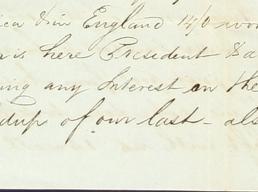 ica & in England 14/0 wor
is here President & a
ing any Interest on the
dup of our last - als